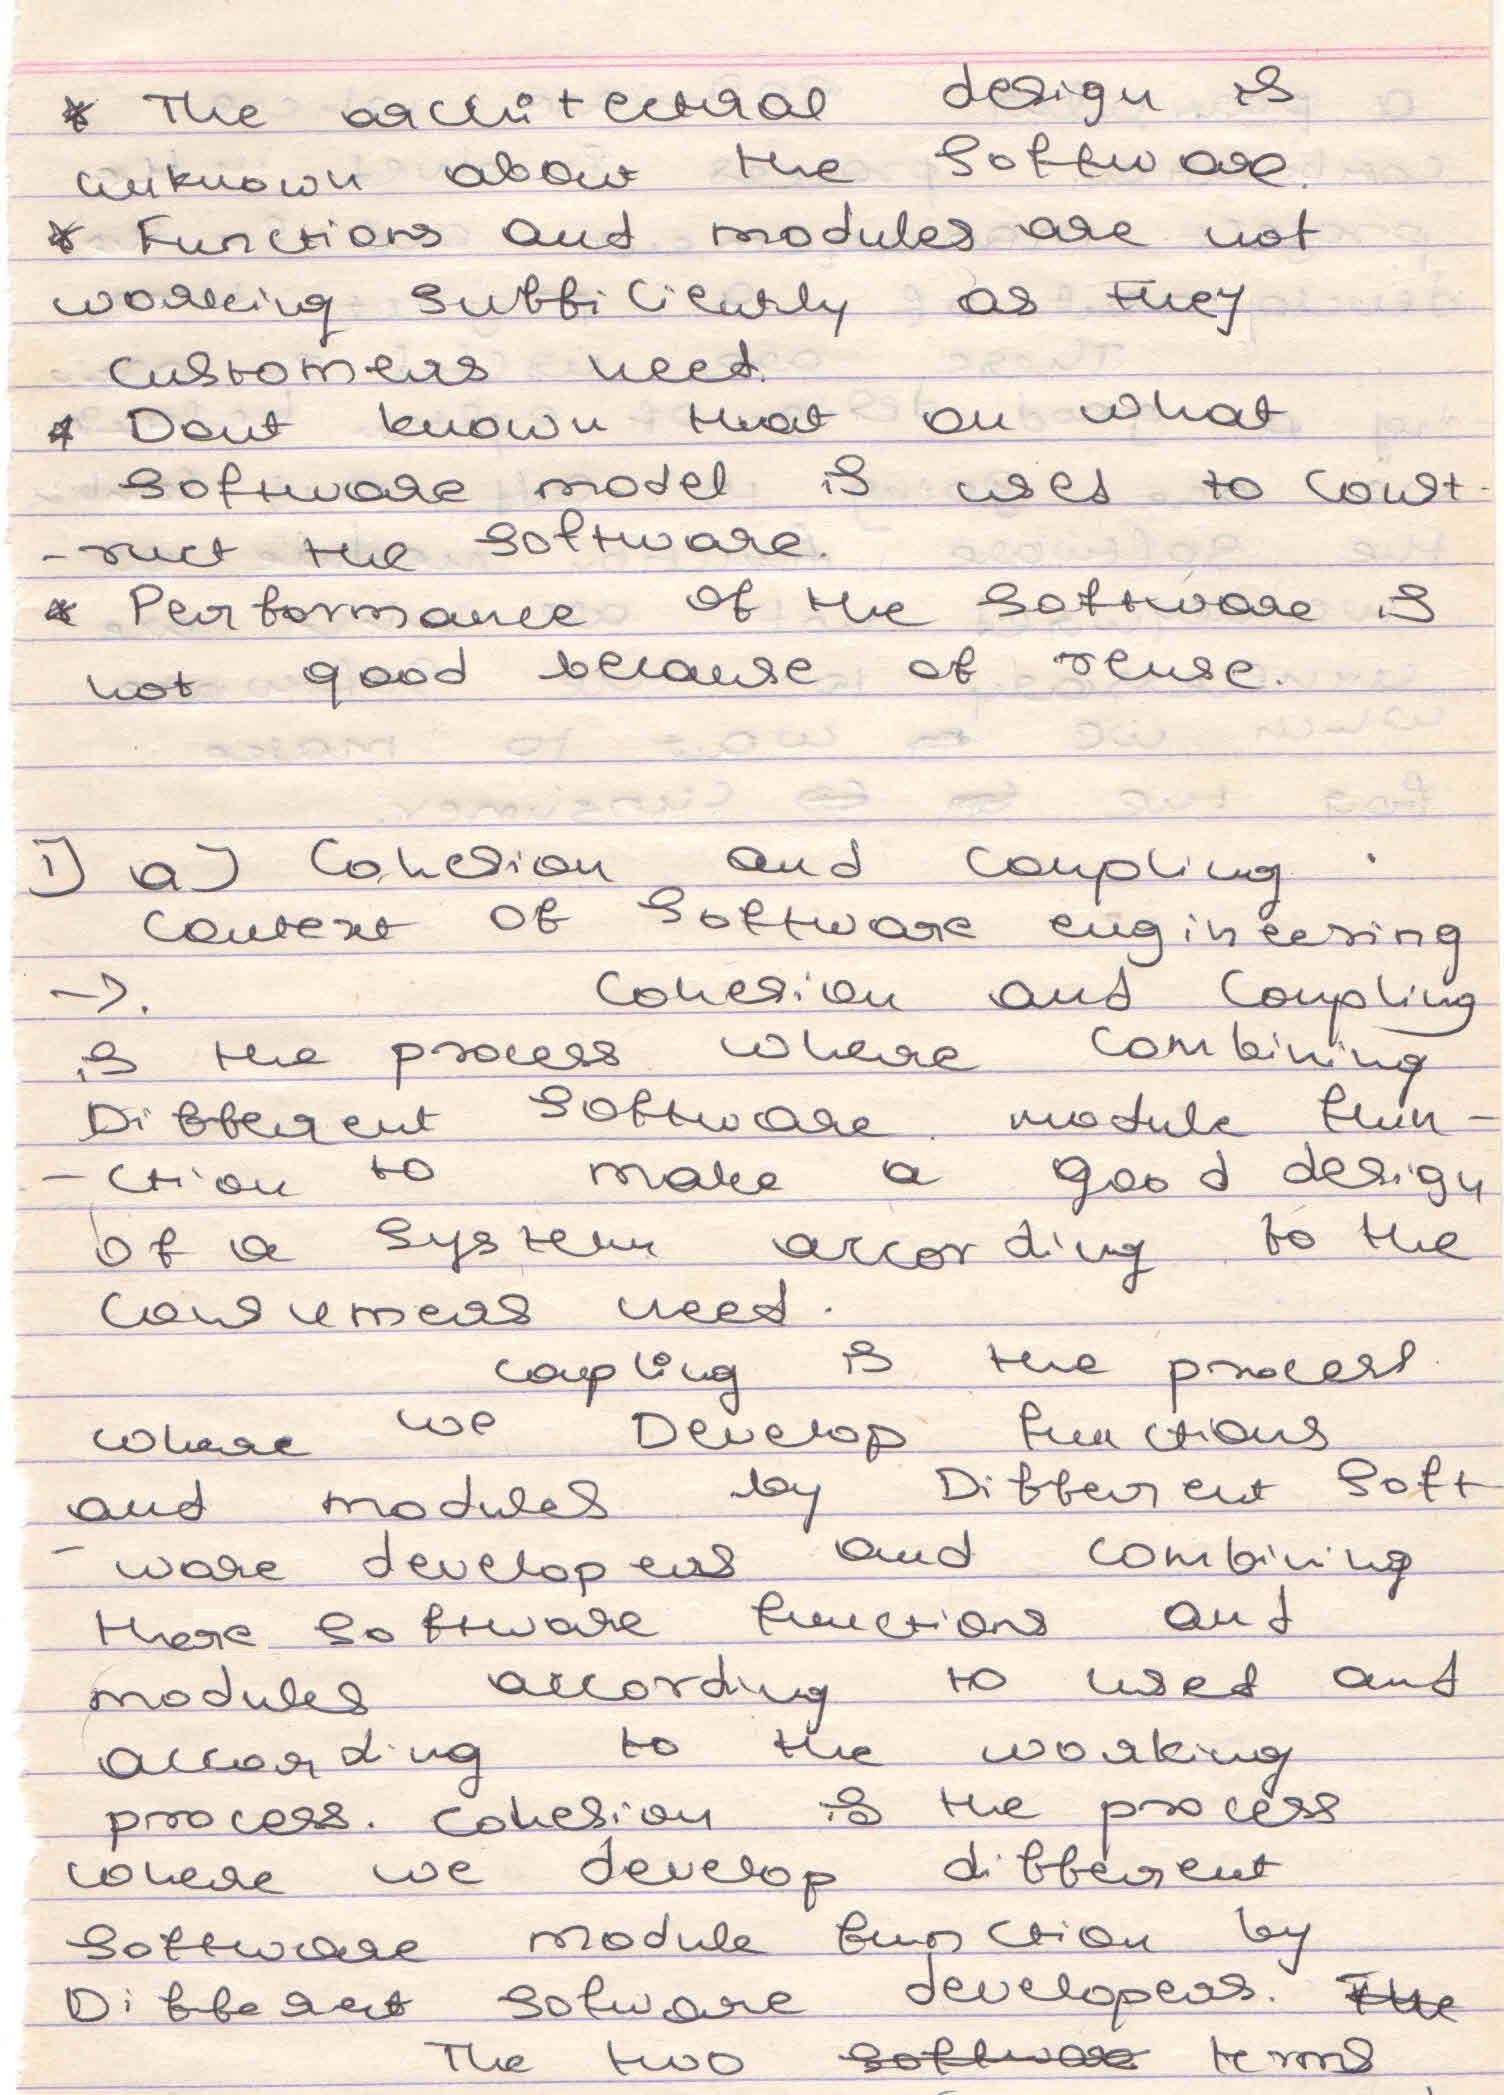 * The architectural design is
unknown about the software.
* Functions and modules are not
working sufficiently as they
customers need.
* Dont known that on what
software model is used to const-
-ruct the software.
* Performance of the software is
not good because of reuse.
1) a) Cohesion and coupling.
context of software engineering
->. Cohesion and coupling
is the process where combining
Different software module fun-
-ction to make a good design
of a system according to the
consumers need.
coupling is the process
where we Develop functions
and modules by Different soft
-ware developers and combining
there software functions and
modules according to used and
according to the working
process. cohesion is the process
where we develop different
software module function by
Different sofware developers. The
The two software terms